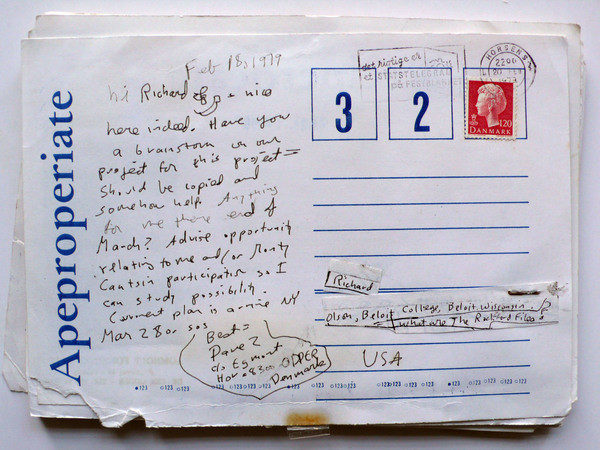 Apeproperiate
Feb 18, 1979
hi Richard + nice
here indeed. Have you
a brainstorm on our
project for this project=
Should be copied and
somehow help Anything
for me there end of
March? Advise opportunity
relating to me and/or Monty
Cantsin participation so I
can study possibility.
Current plan is arrive NY
Mar 28 or so
Best=
Dave Z
c/o Egmont
Hov. 8300 ODDER
Denmark
det rigtige er
et STATSTELEGRAM
på FESTBLANKET
HORSENS
2200
20 FEB
1979
3 2
120
DANMARK
Richard
Olson, Beloit College, Beloit Wisconsin.
= what are The Rockford Files?
USA
123 123 123 123 123 123 123 123 123 123 123